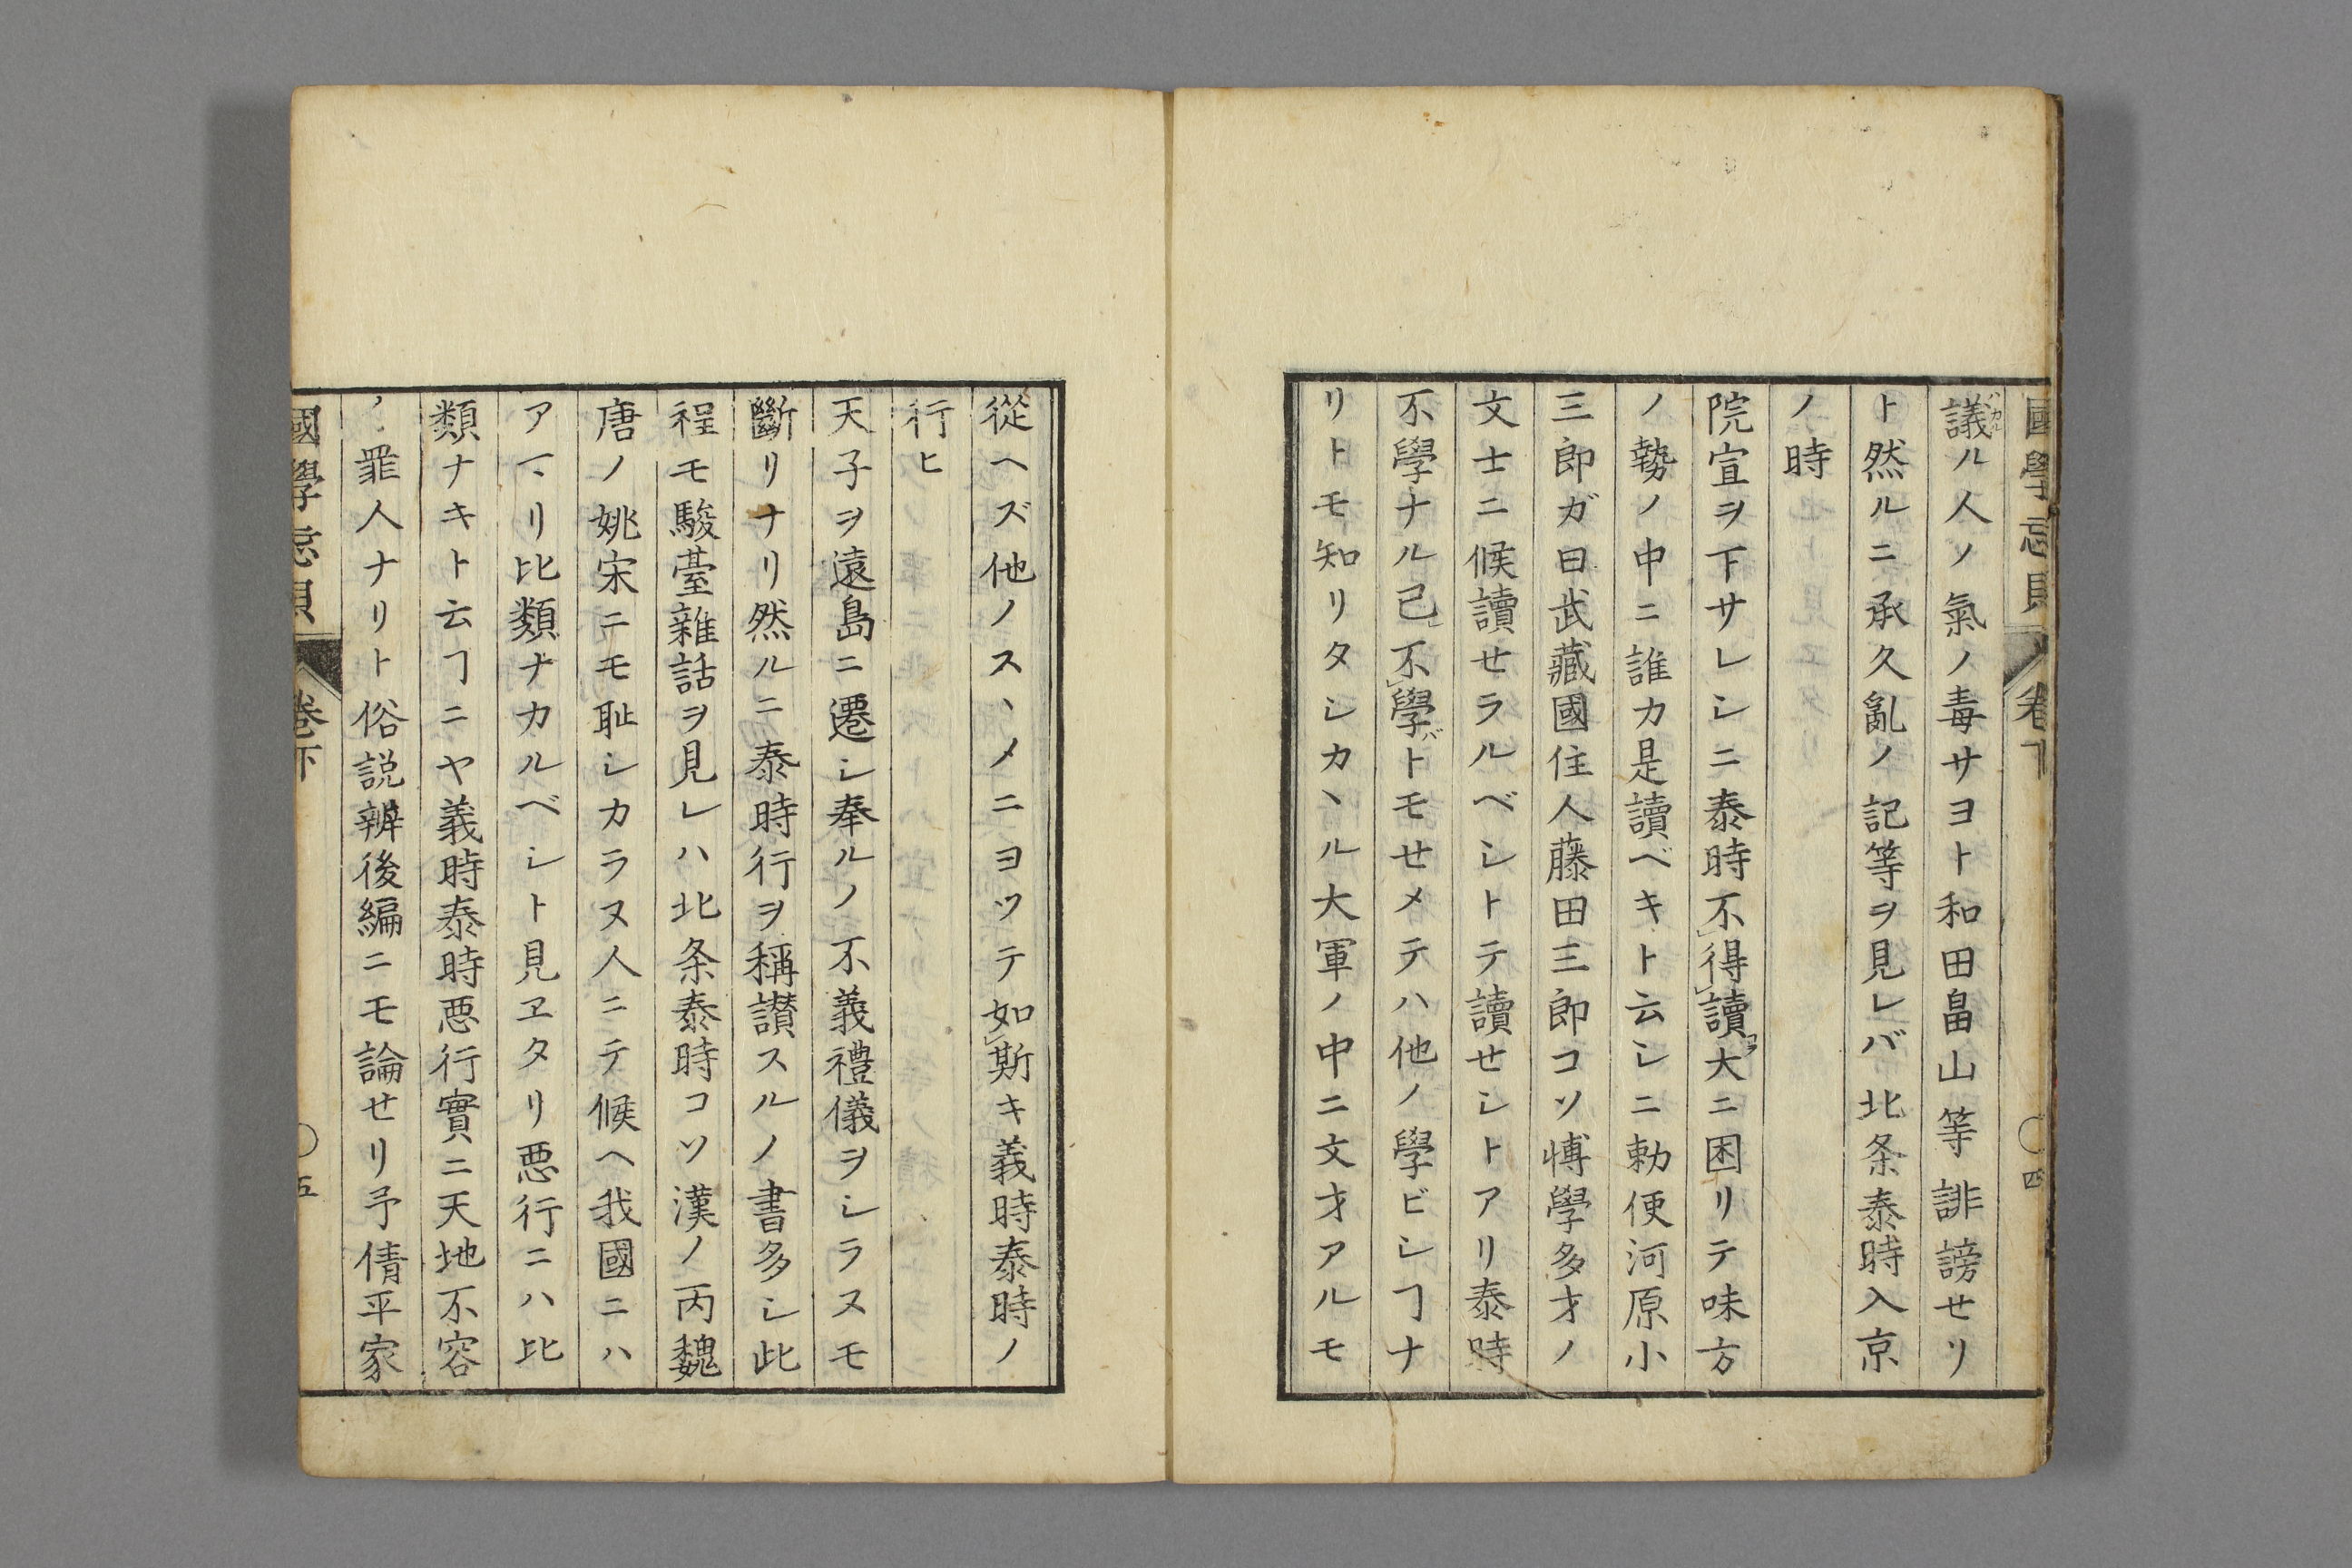 國學忘貝 卷下 〇四
議ル人ノ氣ノ毒サヨト和田畠山等誹謗せリ
ト然ルニ承久亂ノ記等ヲ見レバ北条泰時入京
ノ時
院宣ヲ下サレシニ泰時不得讀大ニ困リテ味方
ノ勢ノ中ニ誰カ是讀ベキト云シニ勅使河原小
三郎ガ曰武藏國住人藤田三郎コソ博學多才ノ
文士ニ候讀せラルベシトテ讀せシトアリ泰時
不學ナル己不學バトモせメテハ他ノ學ビシヿナ
リトモ知リタシカヽル大軍ノ中ニ文才アルモ
從ヘズ他ノスヽメニヨツテ如斯キ義時泰時ノ
行ヒ
天子ヲ遠島ニ遷シ奉ルノ不義禮儀ヲシラヌモ
斷リナリ然ルニ泰時行ヲ稱讃スルノ書多シ此
程モ駿臺雜話ヲ見レハ北条泰時コソ漢ノ丙魏
唐ノ姚宋ニモ耻シカラヌ人ニテ候ヘ我國ニハ
アマリ比類ナカルベシト見ヱタリ悪行ニハ比
類ナキト云ヿニヤ義時泰時悪行實ニ天地不容
罪人ナリト俗説辨後編ニモ論せリ予倩平家
國學忘貝 卷下 〇五